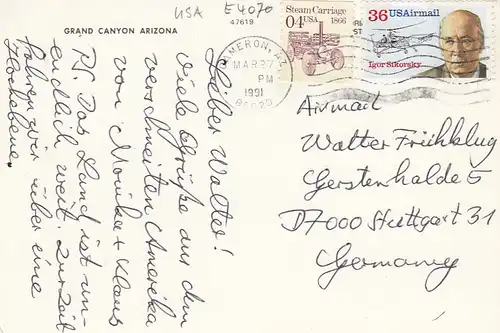 USA E4070
47619
GRAND CANYON ARIZONA
Steam Carriage
04 USA 1866
36 USAirmail
Igor Sikorsky
CAMERON, AZ
MAR 27
PM
1991
86020
Lieber Walter!
Viele Grüße aus dem
verschneiten Amerika
von Monika + Klaus
P.S. Das Land ist un-
endlich weit. Zur Zeit
fahren wir über eine
Hochebene.
Airmail
Walter Frühklug
Gerstenhalde 5
D7000 Stuttgart 31
Germany